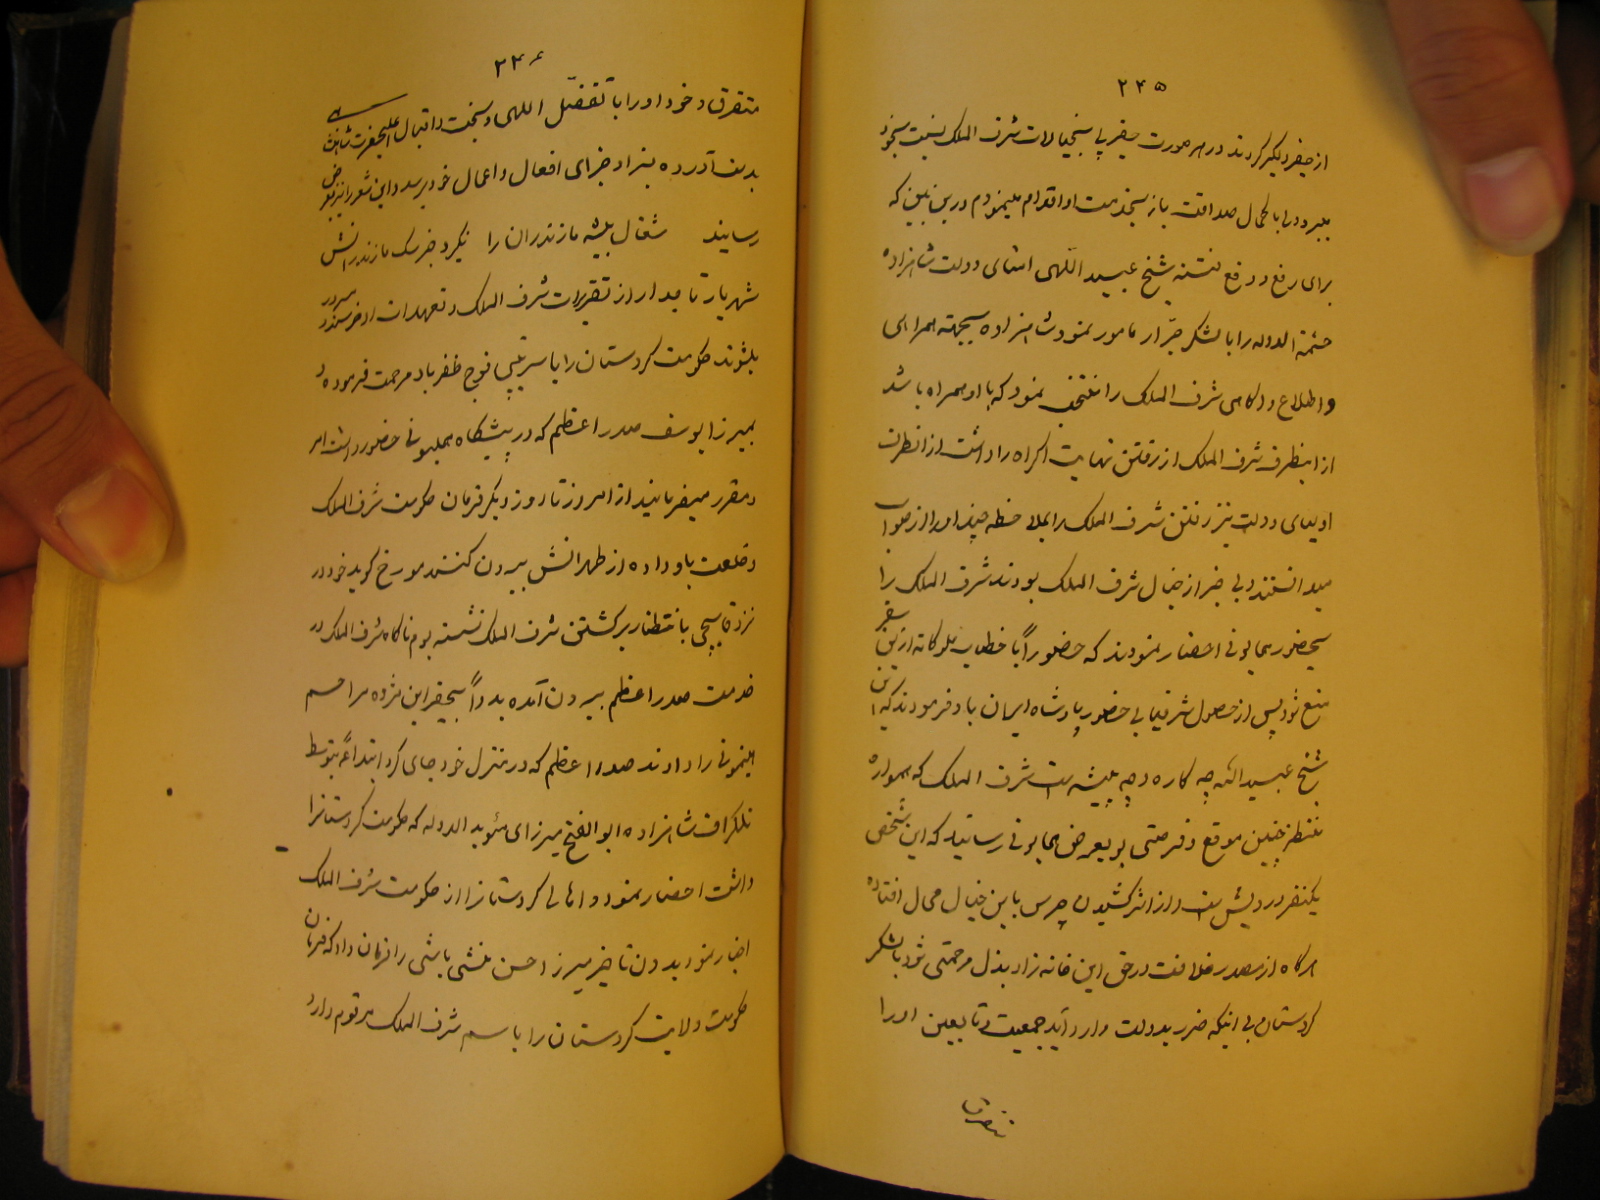 ۲۴۵
از حقیر دیگیر کردند در هر صورت حقیر پی بخیالات شرف الملک نسبت بخود
ببرود با کمال صداقت باز بخدمت او اقدام مینمودم درین بین که
برای رفع و دفع فتنه شیخ عبید اللهی امنای دولت شاهزاده
حشمة الدوله را با لشکر جرّار مامور نمود شاهزاده بجهته همراهی
و اطلاع و آگاهی شرف الملک را منتخب نمود که با او همراه باشد
از اینطرف شرف الملک از رفتن نهایت اکراه را داشت از انطرف
اولیای دولت نیز رفتن شرف الملک را
میدانستند و بی خبر از خیال شرف الملک بودند شرف الملک را
بحضور همایونی احضار نمودند که حضوراً با خطاب ملوکانه ازین سفر
منع شود پس از حصول شرفیابی حضور پادشاه ایران باو فرمودند که این
شیخ عبید الله چه کاره و چه پیشه است شرف الملک که همواره
منتظر چنین موقع و فرصتی بود بعرض همایونی رسانید که این شخص
یکنفر درویش است و از اثر کشیدن چرس باین خیال محال افتاده
هرگاه از مصدر خلافت در حق این خانه زاد بذل مرحمتی شود با لشکر
کردستان بی اینکه ضرر بدولت وارد آید جمعیت و تابعین او را
متفرق
۲۴۶
متفرق و خود او را با تفضّل اللهی و بخت و اقبال اعلیحضرت شاهنشاهی
بدست آورده بنزاد جزای افعال و اعمال خود برسد و این شعر را نیز بعرض
رسانید شغال بیشه مازندران را نگیرد جز سگ مازندرانی
شهریار تاجدار از تقریرات شرف الملک و تعهدات او خرسند و مسرور
بشوند حکومت کردستان را با سرتیپی فوج ظفر باو مرحمت فرموده و
بمیرزا یوسف صدر اعظم که در پیشگاه همایونی حضور داشت امر
و مقرر میفرمایند از امروز تا روز دیگر فرمان حکومت شرف الملک
و خلعت باو داده از طهرانش بیرون کنند مورخ گوید خود در
نزد قاپچی بانتظار برگشتن شرف الملک نشسته بودم ناگاه شرف الملک در
خدمت صدر اعظم بیرون آمده بدواً بحقیر این مژده مراحم
همیونی را دادند صدر اعظم که در منزل خود جای کرد ابتداءً بتوسط
تلگراف شاهزاده ابوالفتح میرزای مؤید الدوله که حکومت کردستانرا
داشت احضار نمود و اهالی کردستانرا از حکومت شرف الملک
اخبار نمود بدون تاخیر میرزا حسن منشی باشی را فرمان داد که فرمان
حکومت ولایت کردستان را باسم شرف الملک مرقوم دارد